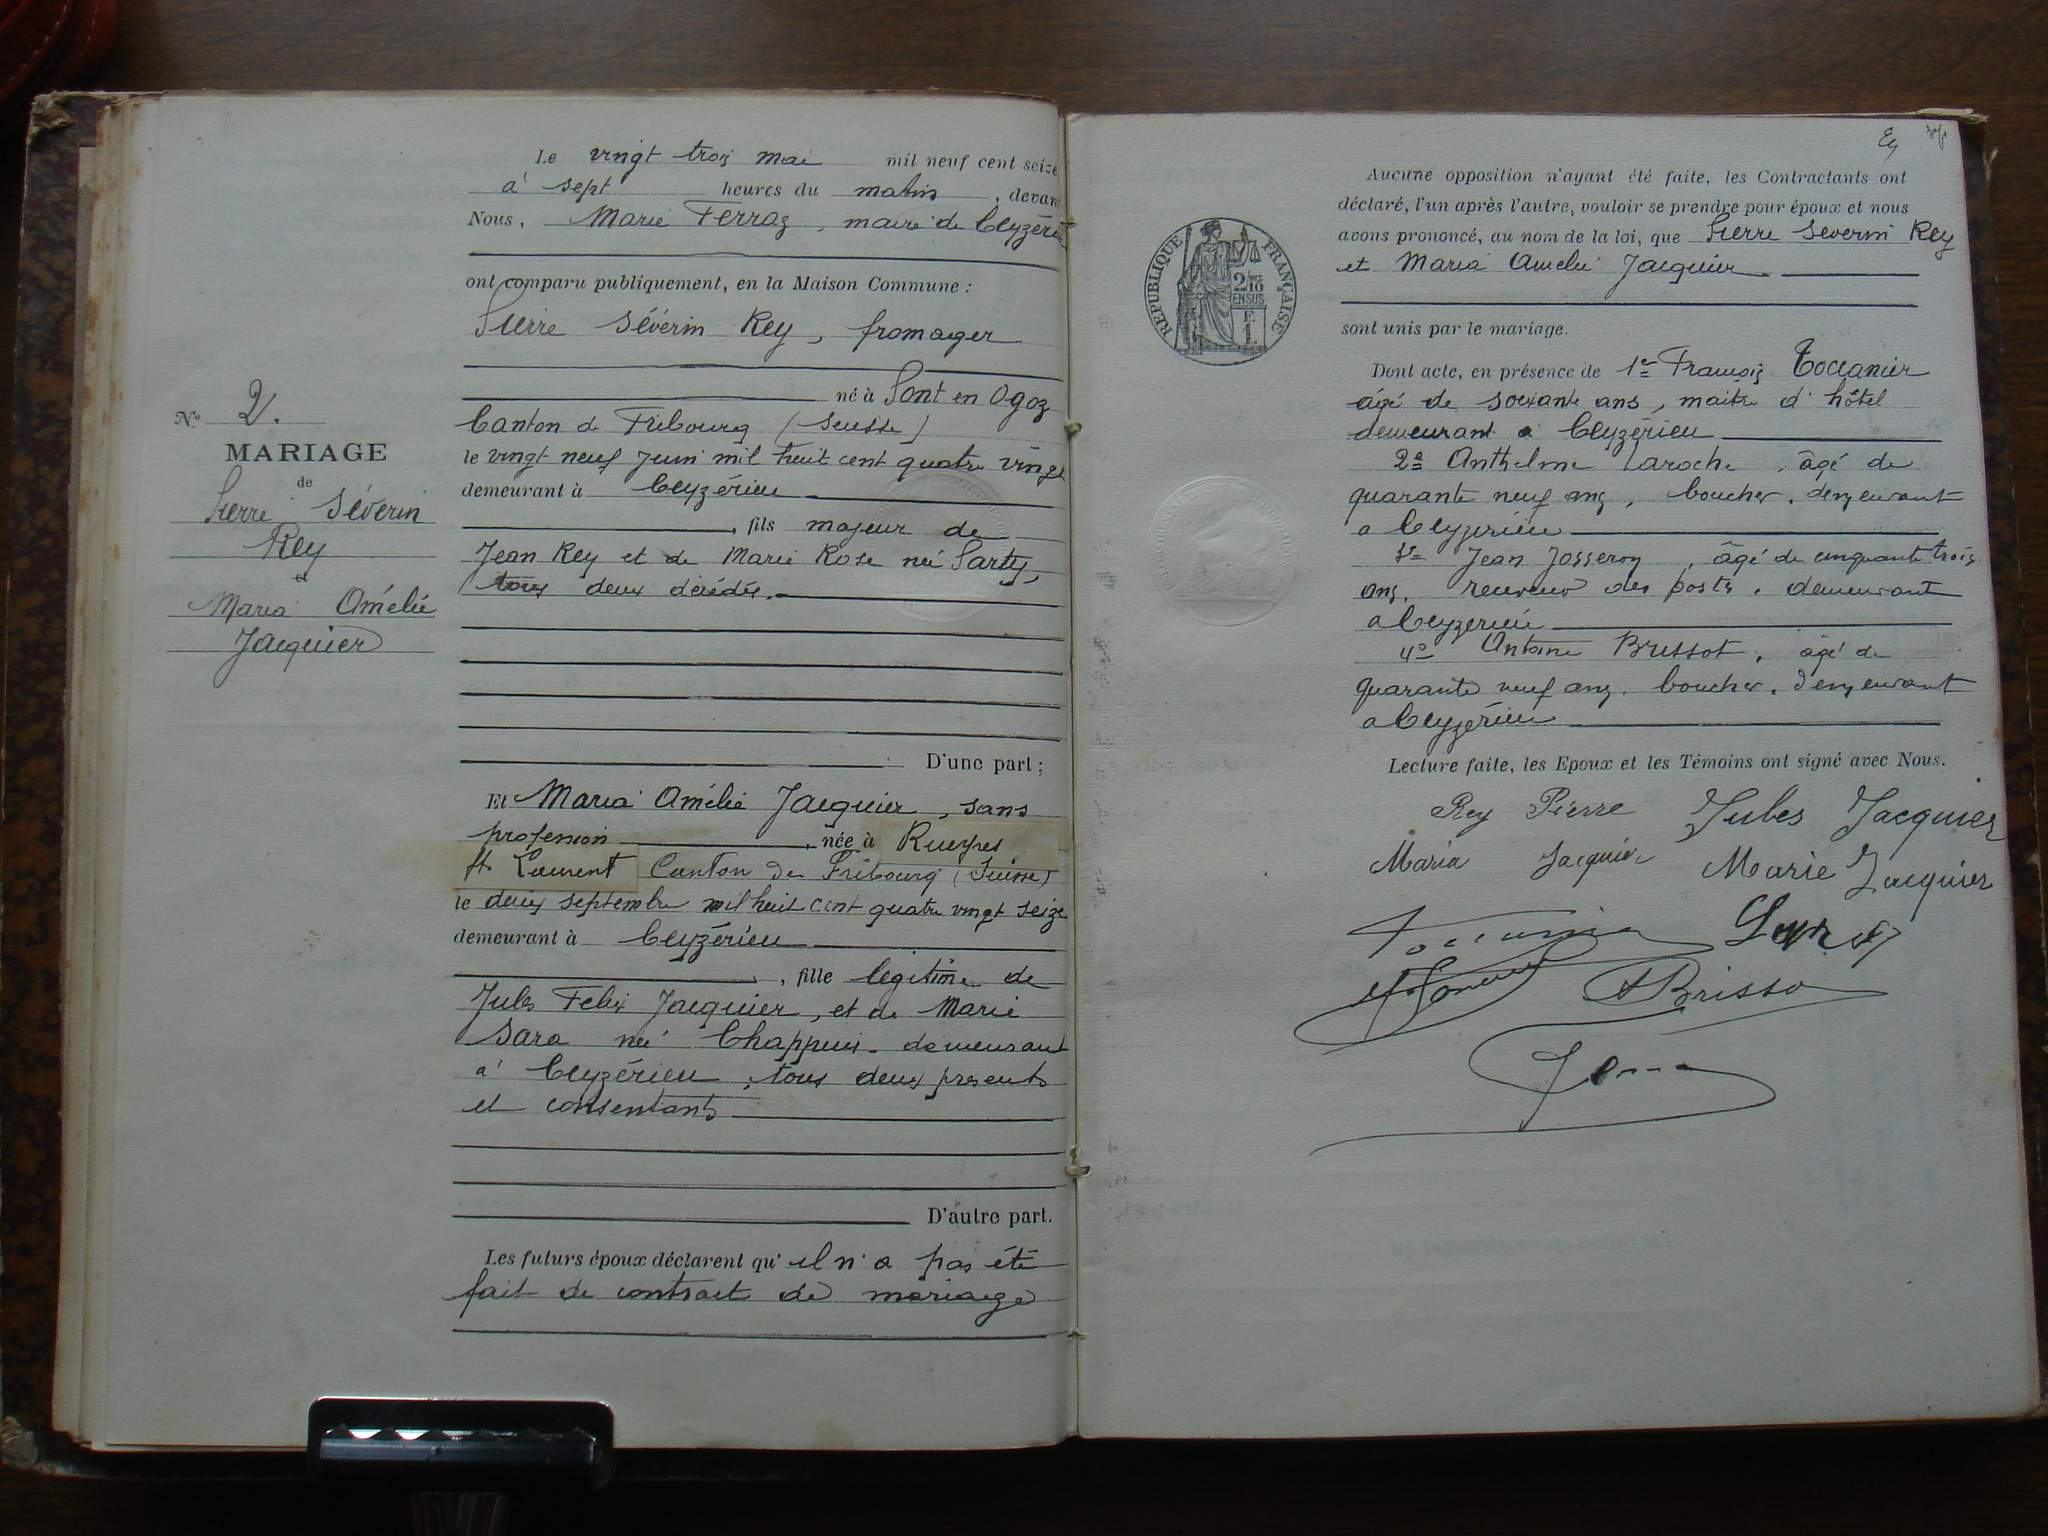 N° 2.
MARIAGE
de
Pierre Séverin
Rey
et
Maria Amélie
Jacquier
Le vingt trois mai mil neuf cent seize
à sept heures du matin, devan
Nous, Marie Ferraz, maire de Ceyzérieu
ont comparu publiquement, en la Maison Commune :
Pierre Séverin Rey, fromager
né à Pont en Ogoz
Canton de Fribourg (Suisse)
le vingt neuf Juin mil huit cent quatre vingt
demeurant à Ceyzérieu
, fils majeur de
Jean Rey et de Marie Rose née Party,
tous deux décédés.
D'une part ;
Et Maria Amélie Jacquier, sans
profession, née à Rueyres
St. Laurent Canton de Fribourg (Suisse)
le deux septembre mil huit cent quatre vingt seize
demeurant à Ceyzérieu
, fille légitime de
Jules Felix Jacquier, et de Marie
Sara née Chappuis. demeurant
à Ceyzérieu, tous deux presents
et consentants
D'autre part.
Les futurs époux déclarent qu'il n'a pas été
fait de contract de mariage
Aucune opposition n'ayant été faite, les Contractants ont
déclaré, l'un après l'autre, vouloir se prendre pour époux et nous
avons prononcé, au nom de la loi, que Pierre Severin Rey
et Maria Amelie Jacquier
sont unis par le mariage.
RÉPUBLIQUE FRANÇAISE
2/10
EN SUS
F.
1.
Dont acte, en présence de 1° François Toccanier
âgé de soixante ans, maitre d'hôtel
demeurant a Ceyzérieu
2° Anthelme Laroche, âgé de
quarante neuf ans, boucher, demeurant
a Ceyzerieu
3° Jean Josseron, âgé de cinquante trois
ans, receveur des postes, demeurant
a Ceyzerieu
4° Antoine Brissot, âgé de
quarante neuf ans, boucher, demeurant
a Ceyzérieu
Lecture faite, les Epoux et les Témoins ont signé avec Nous.
Rey Pierre Jules Jacquier
Maria Jacquier Marie Jacquier
Toccanier
ABrisso